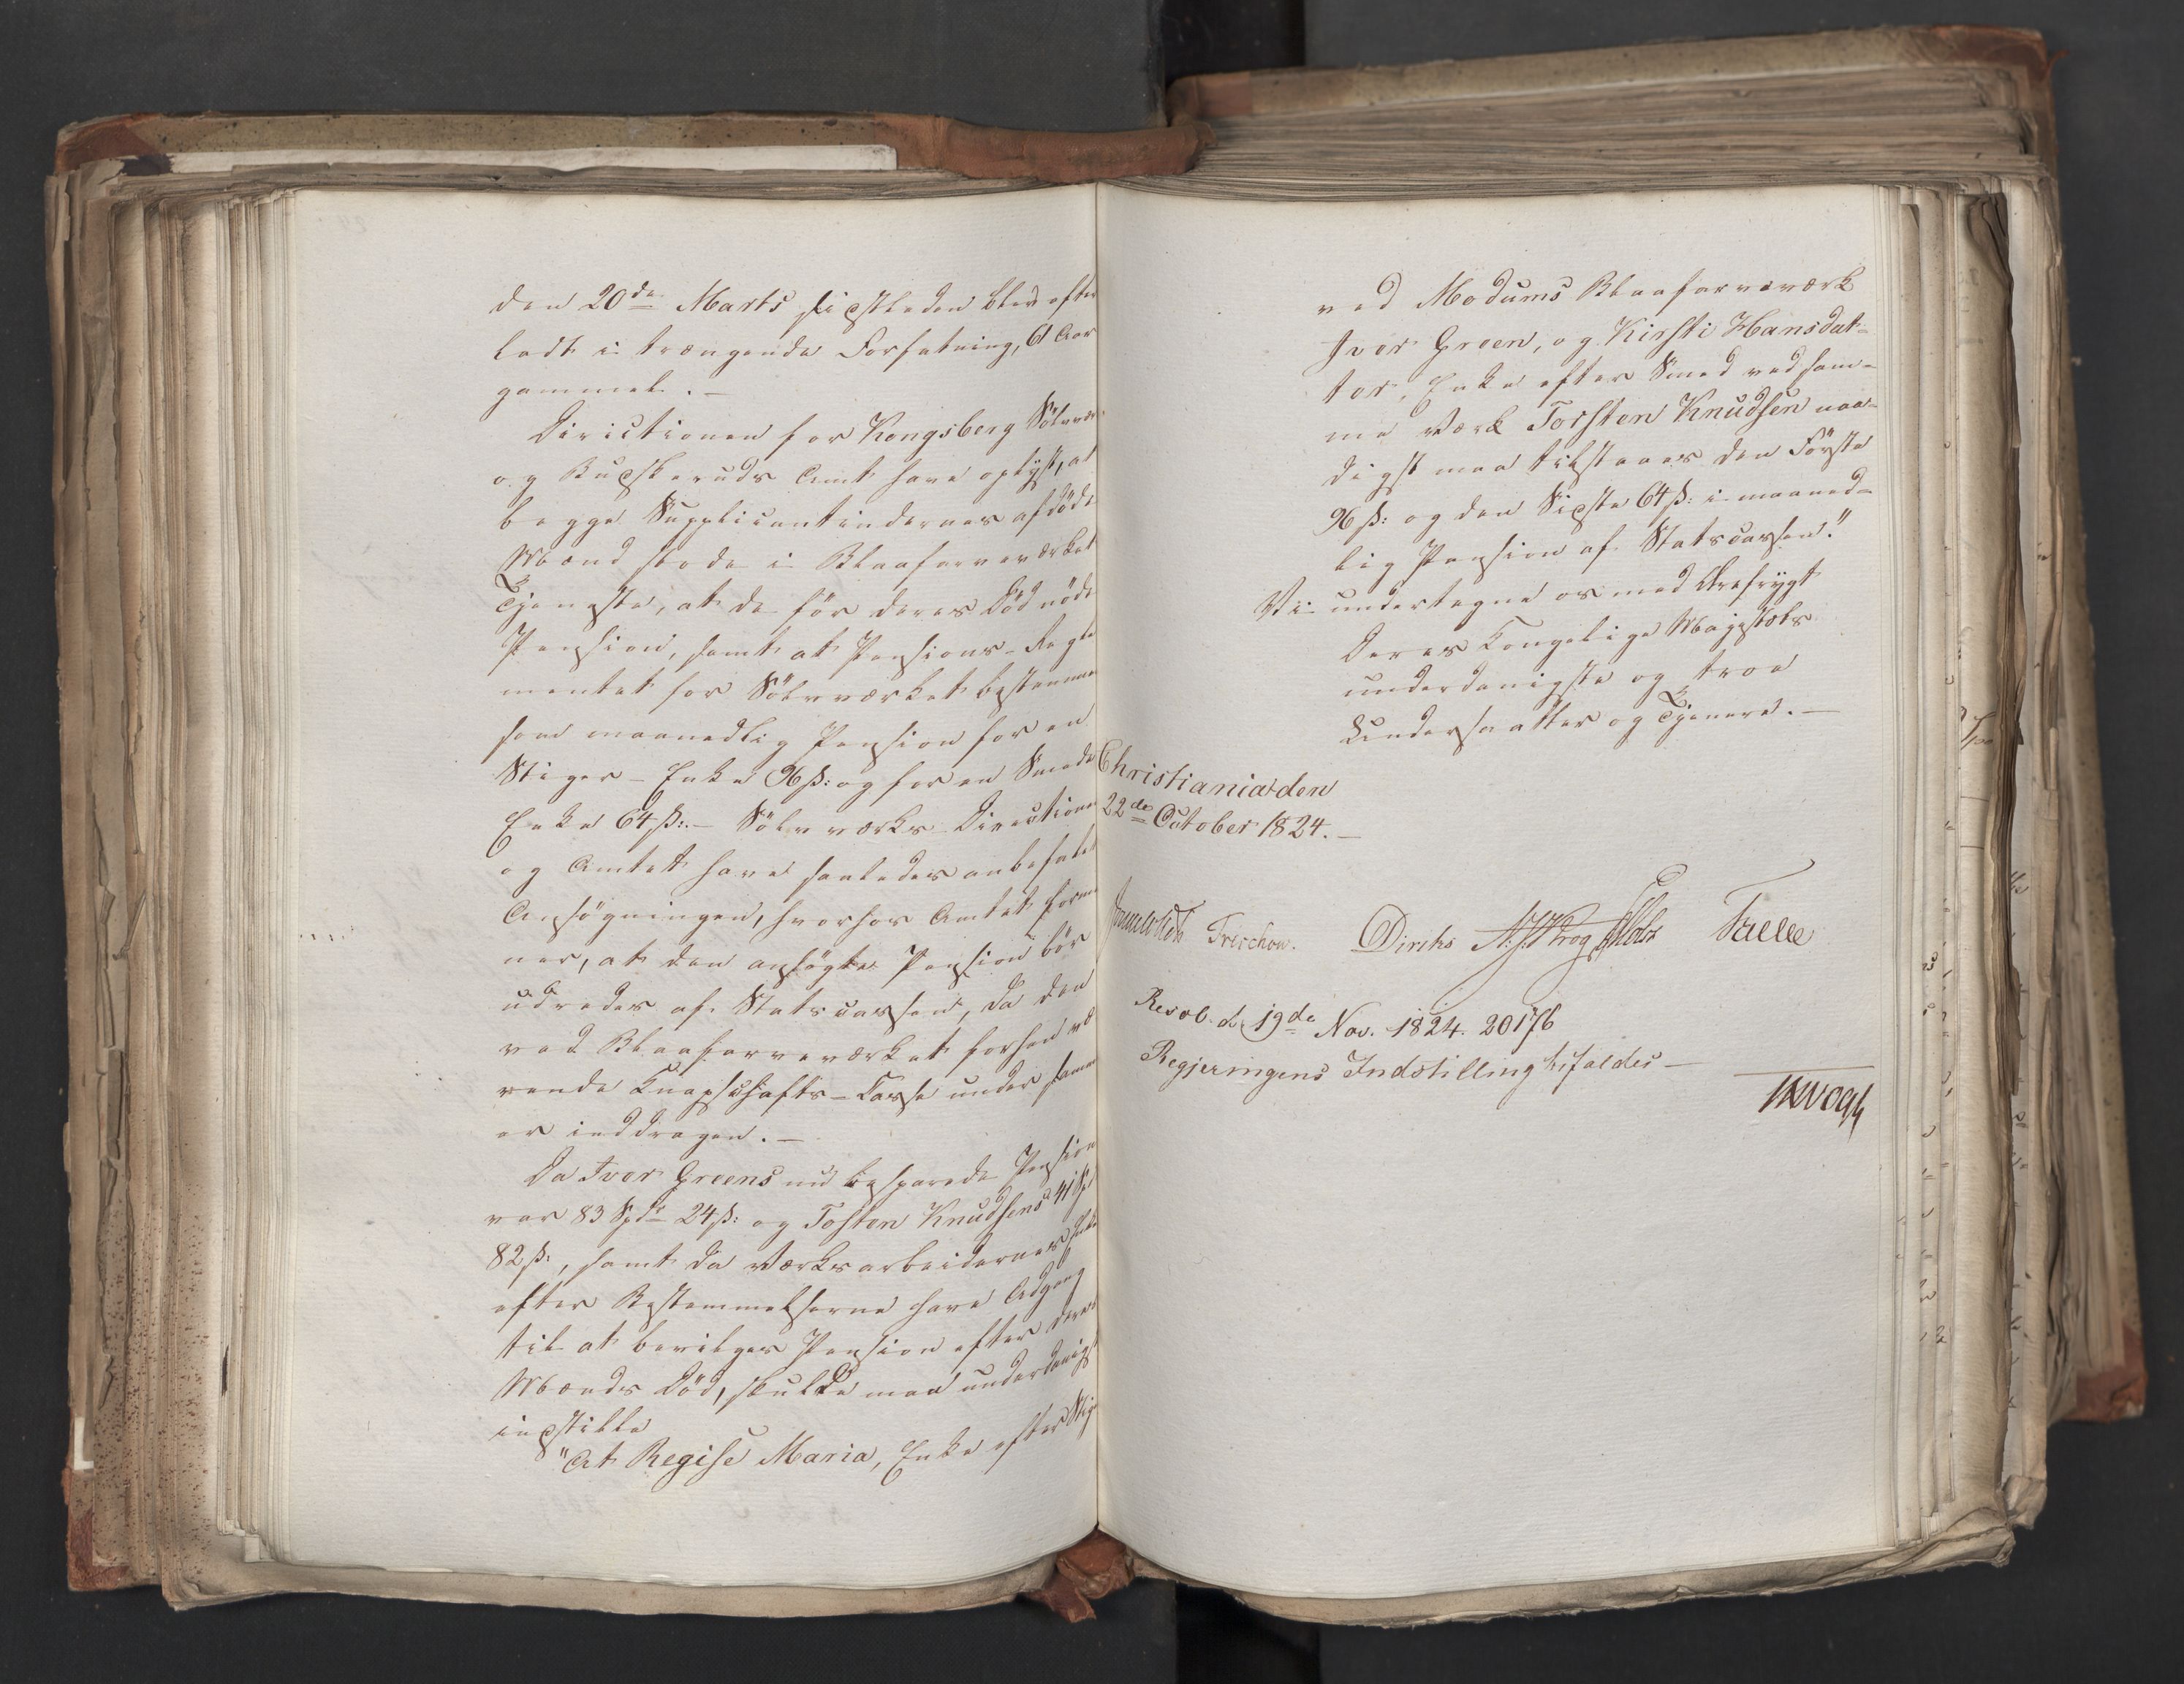 den 20de Marts sidstleden blev efter
ladt i trængende Forfatning, 61 Aar
gammel. —
Directionen for Kongsberg Sölvvær
og Buskeruds Amt have oplyst, at
begge Supplicantindernes afdöde
Mænd stode i Blaafarveværket
Tjeneste, at de för deres Död nöde
Pension, samt at Pensions-Regle
mentet for Sölvværket bestemmer
som maanedlig Pension for en
Stiger-Enke 96 ß: og for en Smede
Enke 64 ß:. — Sölvværks-Directionen
og Amtet have saaledes anbefalet
Ansögningen, hvorhos Amtet forme
ner, at den ansögte Pension bör
udredes af Statscassen, da den
ved Blaafarveværket forhen væ
rende Knapschafts-Casse under samme
er inddragen. —
Da Iver Greens nu besparede Pension
var 83 Spd. 24 ß: og Tosten Knudsens 41 Spd
82 ß:, samt da Værksarbeidernes Enker
efter Bestemmelserne have Adgang
til at bevilges Pension efter deres
Mænds Död, skulde man underdanigst
indstille
"At Regise Maria, Enke efter Stiger
ved Modums Blaafarveværk
Iver Green, og Kirsti Hansdat-
ter, Enke efter Smed ved sam-
me Værk Torsten Knudsen naa-
digst maa tilstaaes den Förste
96 ß: og den Sidste 64 ß: i maaned-
lig Pension af Statscassen."
Vi undertegne os med Ærefrygt
Deres Kongelige Majestæts
underdanigste og troe
Undersaatter og Tjenere. —
Christiania den
22de October 1824. —
Sommerhielm Treschow. Diriks N. J. Krog Fasting
Resol. d. 19de Nov. 1824. 20176
Regjeringens Indstilling bifaldes —
JHVogt